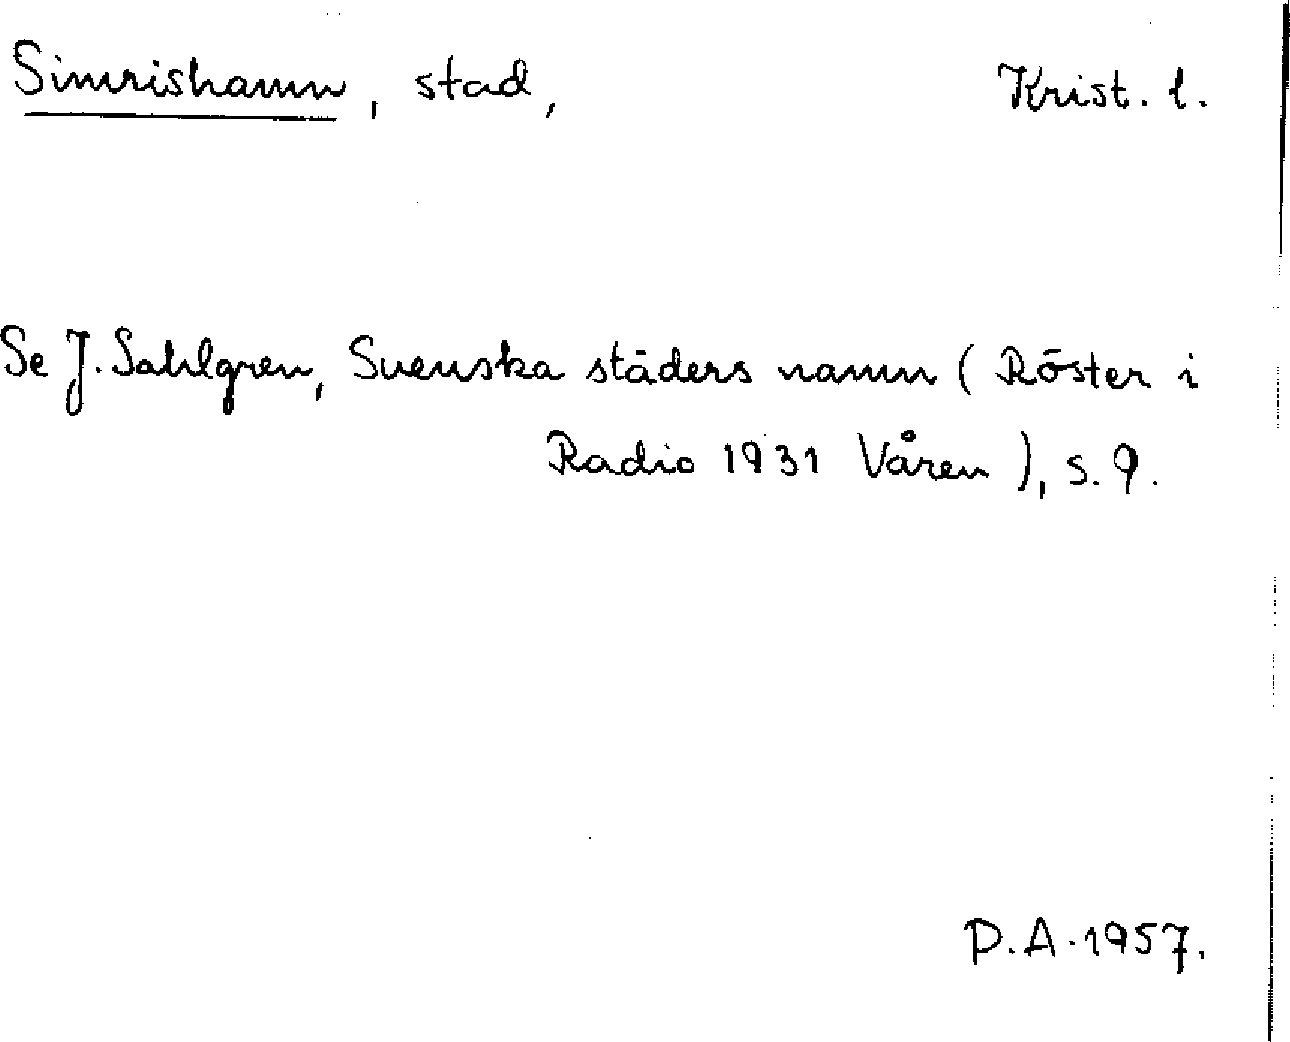 Simrishamn, stad, Krist. l.
Se J. Sahlgren, Svenska städers namn ( Röster i
Radio 1931 Våren ), s. 9.
P.A. 1957.